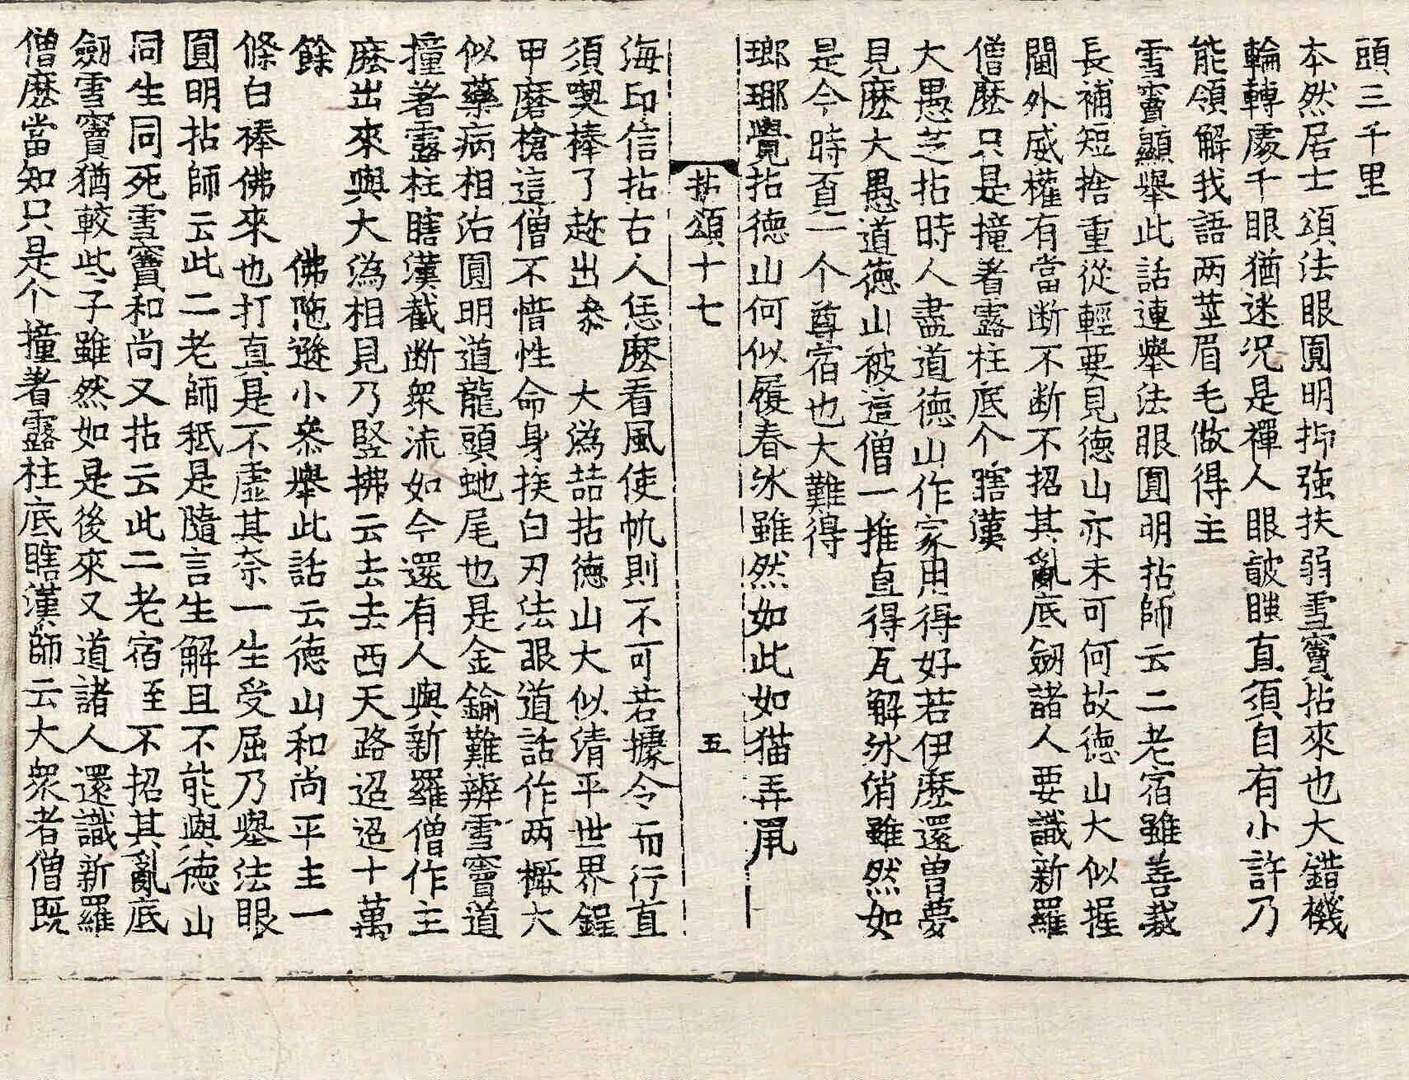 頭三千里
本然居士頌法眼圓明抑強扶弱雪竇拈來也大錯機
輪轉處千眼猶迷况是禪人眼皷䁾直須自有小許乃
能領解我語两莖眉毛做得主
雪竇顯舉此話連舉法眼圓明拈師云二老宿雖善裁
長補短捨重從輕要見德山亦未可何故德山大似握
閫外威權有當断不断不招其亂底劒諸人要識新羅
僧麽只是撞着露柱底个瞎漢
大愚芝拈時人盡道德山作家用得好若伊麽還曽夢
見麽大愚道德山被這僧一推直得瓦解氷消雖然如
是今時覓一个尊宿也大難得
瑯瑘覺拈德山何似履春氷雖然如此如猫弄鼡
拈頌十七 五
海印信拈古人恁麽看風使帆則不可若據令而行直
須喫棒了趂出叅 大潙喆拈德山大似清平世界鋥
甲磨槍這僧不惜性命身挨白刃法眼道話作两橛大
似藥病相治圓明道龍頭虵尾也是金鍮難辨雪竇道
撞着露柱瞎漢截断衆流如今還有人與新羅僧作主
麽出來與大潙相見乃竪拂云去去西天路迢迢十萬
餘 佛陁遜小叅舉此話云德山和尚平主一
條白棒佛來也打真是不虛其奈一生受屈乃舉法眼
圓明拈師云此二老師秖是隨言生解且不能與德山
同生同死雪竇和尚又拈云此二老宿至不招其亂底
劒雪竇猶較些子雖然如是後來又道諸人還識新羅
僧麽當知只是个撞着露柱底瞎漢師云大衆者僧旣